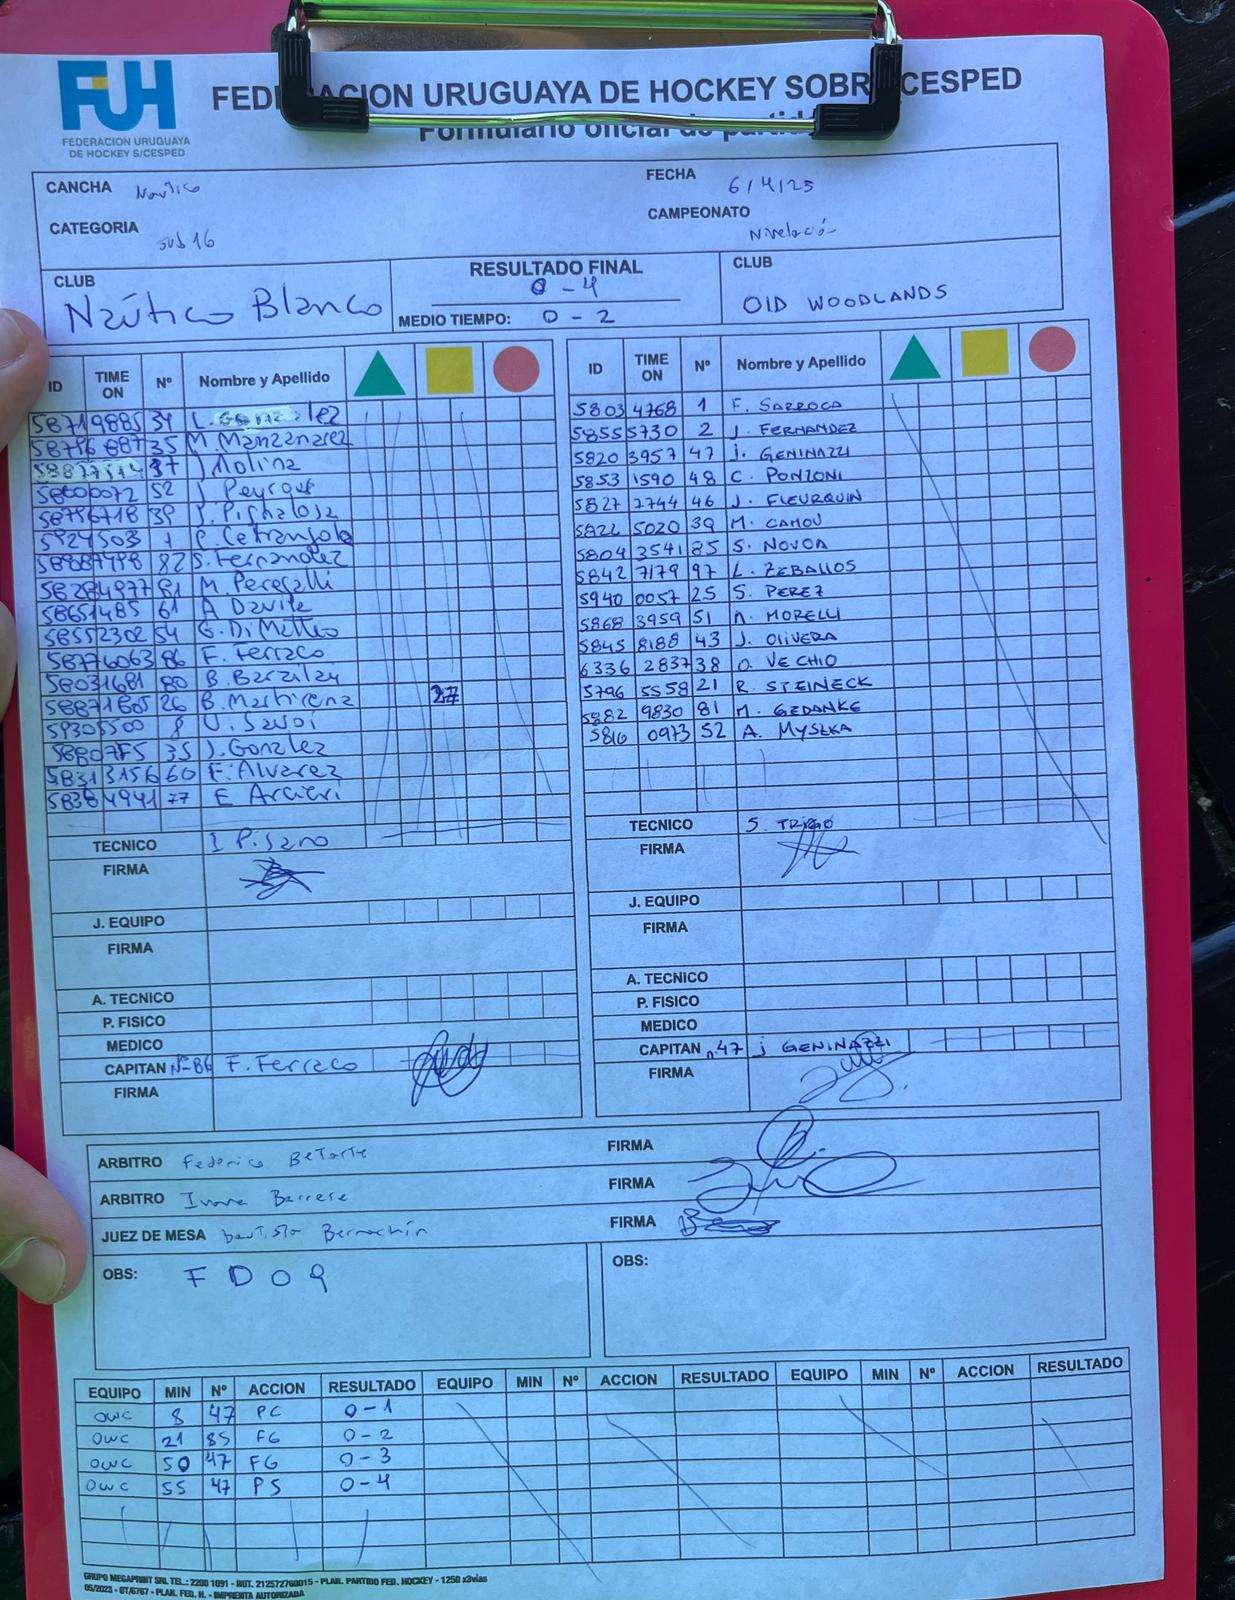 FUH
FEDERACION URUGUAYA
DE HOCKEY S/CESPED
FEDERACION URUGUAYA DE HOCKEY SOBRE CESPED
Formulario oficial de partido
CANCHA Nautico
FECHA 6/4/25
CATEGORIA sub 16
CAMPEONATO Nivelación
CLUB Naútico Blanco
RESULTADO FINAL 0-4
MEDIO TIEMPO: 0-2
CLUB Old WOODLANDS
ID TIME ON Nº Nombre y Apellido
58719885 34 L. Gonzalez
35 M. Manzanarez
37 J Molina
52 J. Peyrou
39
1 P. Cetrangolo
82 S. Fernandez
81 M. Peregalli
58651485 61 A Davila
58552302 54 G. Di Matteo
58776063 86 F. Ferraco
58031681 80 B. Barzilay
26 B. Martirena 27
59305500 8
35 J. Gonzlez
58313156 60 F. Alvarez
58384941 77 E Arcieri
TECNICO I Pisano
FIRMA
J. EQUIPO
FIRMA
A. TECNICO
P. FISICO
MEDICO
CAPITAN Nº86 F. Ferraco
FIRMA
ID TIME ON Nº Nombre y Apellido
5803 4768 1 F. SARROCA
5855 5730 2 J. FERNANDEZ
5820 3957 47 J. GENINAZZI
5853 1590 48 C. PONZONI
5827 2744 46 J. FLEURQUIN
5822 5020 39 M. CAMOU
5804 3541 85 S. NOVOA
5842 7179 97 L. ZEBALLOS
5940 0057 25 S. PEREZ
5868 3959 51 M. MORELLI
5845 8188 43 J. OLIVERA
6336 2837 38 O. VECHIO
5796 5558 21 R. STEINECK
5882 9830 81 M. GEDANKE
5816 0973 52 A. MYSLKA
TECNICO S. TRIGO
FIRMA
J. EQUIPO
FIRMA
A. TECNICO
P. FISICO
MEDICO
CAPITAN n.47 J GENINAZZI
FIRMA
ARBITRO Federico Betarte FIRMA
ARBITRO Barrese FIRMA
JUEZ DE MESA bautista FIRMA
OBS: F D O 9
OBS:
EQUIPO MIN Nº ACCION RESULTADO EQUIPO MIN Nº ACCION RESULTADO EQUIPO MIN Nº ACCION RESULTADO
OWC 8 47 PC 0-1
OWC 21 85 FG 0-2
OWC 50 47 FG 0-3
OWC 55 47 PS 0-4
GRUPO MEGAPRINT SRL TEL.: 2200 1091 - RUT. 212572760015 - PLAN. PARTIDO FED. HOCKEY - 1250 x3vias
05/2023 - OT/6767 - PLAN. FED. H. - IMPRENTA AUTORIZADA